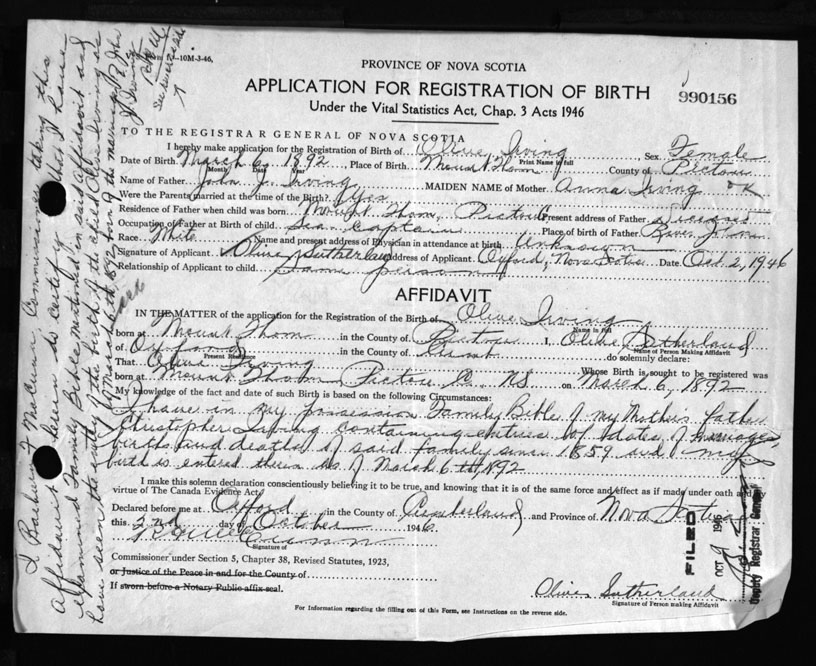 Form 10M-3-46,
PROVINCE OF NOVA SCOTIA
APPLICATION FOR REGISTRATION OF BIRTH
Under the Vital Statistics Act, Chap. 3 Acts 1946
990156
TO THE REGISTRAR GENERAL OF NOVA SCOTIA
I hereby make application for the Registration of Birth of Olive Irving Sex Female
Print Name in full
Date of Birth March 6, 1892, Place of Birth Mount Thom County of Pictou
Month Day Year
Name of Father John J. Irving MAIDEN NAME of Mother Anna Irving OK
Were the Parents married at the time of the Birth? Yes
Residence of Father when child was born Mount Thom, Pictou Present address of Father
Occupation of Father at Birth of child Sea Captain Place of birth of Father River John
Race White Name and present address of Physician in attendance at birth Unknown
Signature of Applicant Olive Sutherland Address of Applicant Oxford, Nova Scotia Date Oct 2, 1946
Relationship of Applicant to child Same person
AFFIDAVIT
IN THE MATTER of the application for the Registration of the Birth of Olive Irving
Name in Full
born at Mount Thom in the County of Pictou I, Olive Sutherland
Name of Person Making Affidavit
of Oxford in the County of Cumb do solemnly declare:
Present Residence
That Olive Irving Whose Birth is sought to be registered was
born at Mount Thom Pictou Co. NS on March 6, 1892
My knowledge of the fact and date of such Birth is based on the following Circumstances:
I have in my possession Family Bible of my Mothers father
Christopher Irving containing entries of dates of marriages,
births and deaths of said family since 1859 and my
birth is entered therein as of March 6th, 1892
I make this solemn declaration conscientiously believing it to be true, and knowing that it is of the same force and effect as if made under oath and by
virtue of The Canada Evidence Act.
Declared before me at Oxford in the County of Cumberland and Province of Nova Scotia
this 2nd day of October 1946
Signature of
Commissioner under Section 5, Chapter 38, Revised Statutes, 1923,
or Justice of the Peace in and for the County of
If sworn before a Notary Public affix seal.
Olive Sutherland
Signature of Person making Affidavit
For Information regarding the filling out of this Form, see Instructions on the reverse side.
FILED
OCT 9 1946
Deputy Registrar General
Commissioner taking this
affidavit hereby certify that I have
examined Family Bible mentioned in said affidavit and
have seen the entry of the birth of the child Olive Irving as
of March 6th 1892